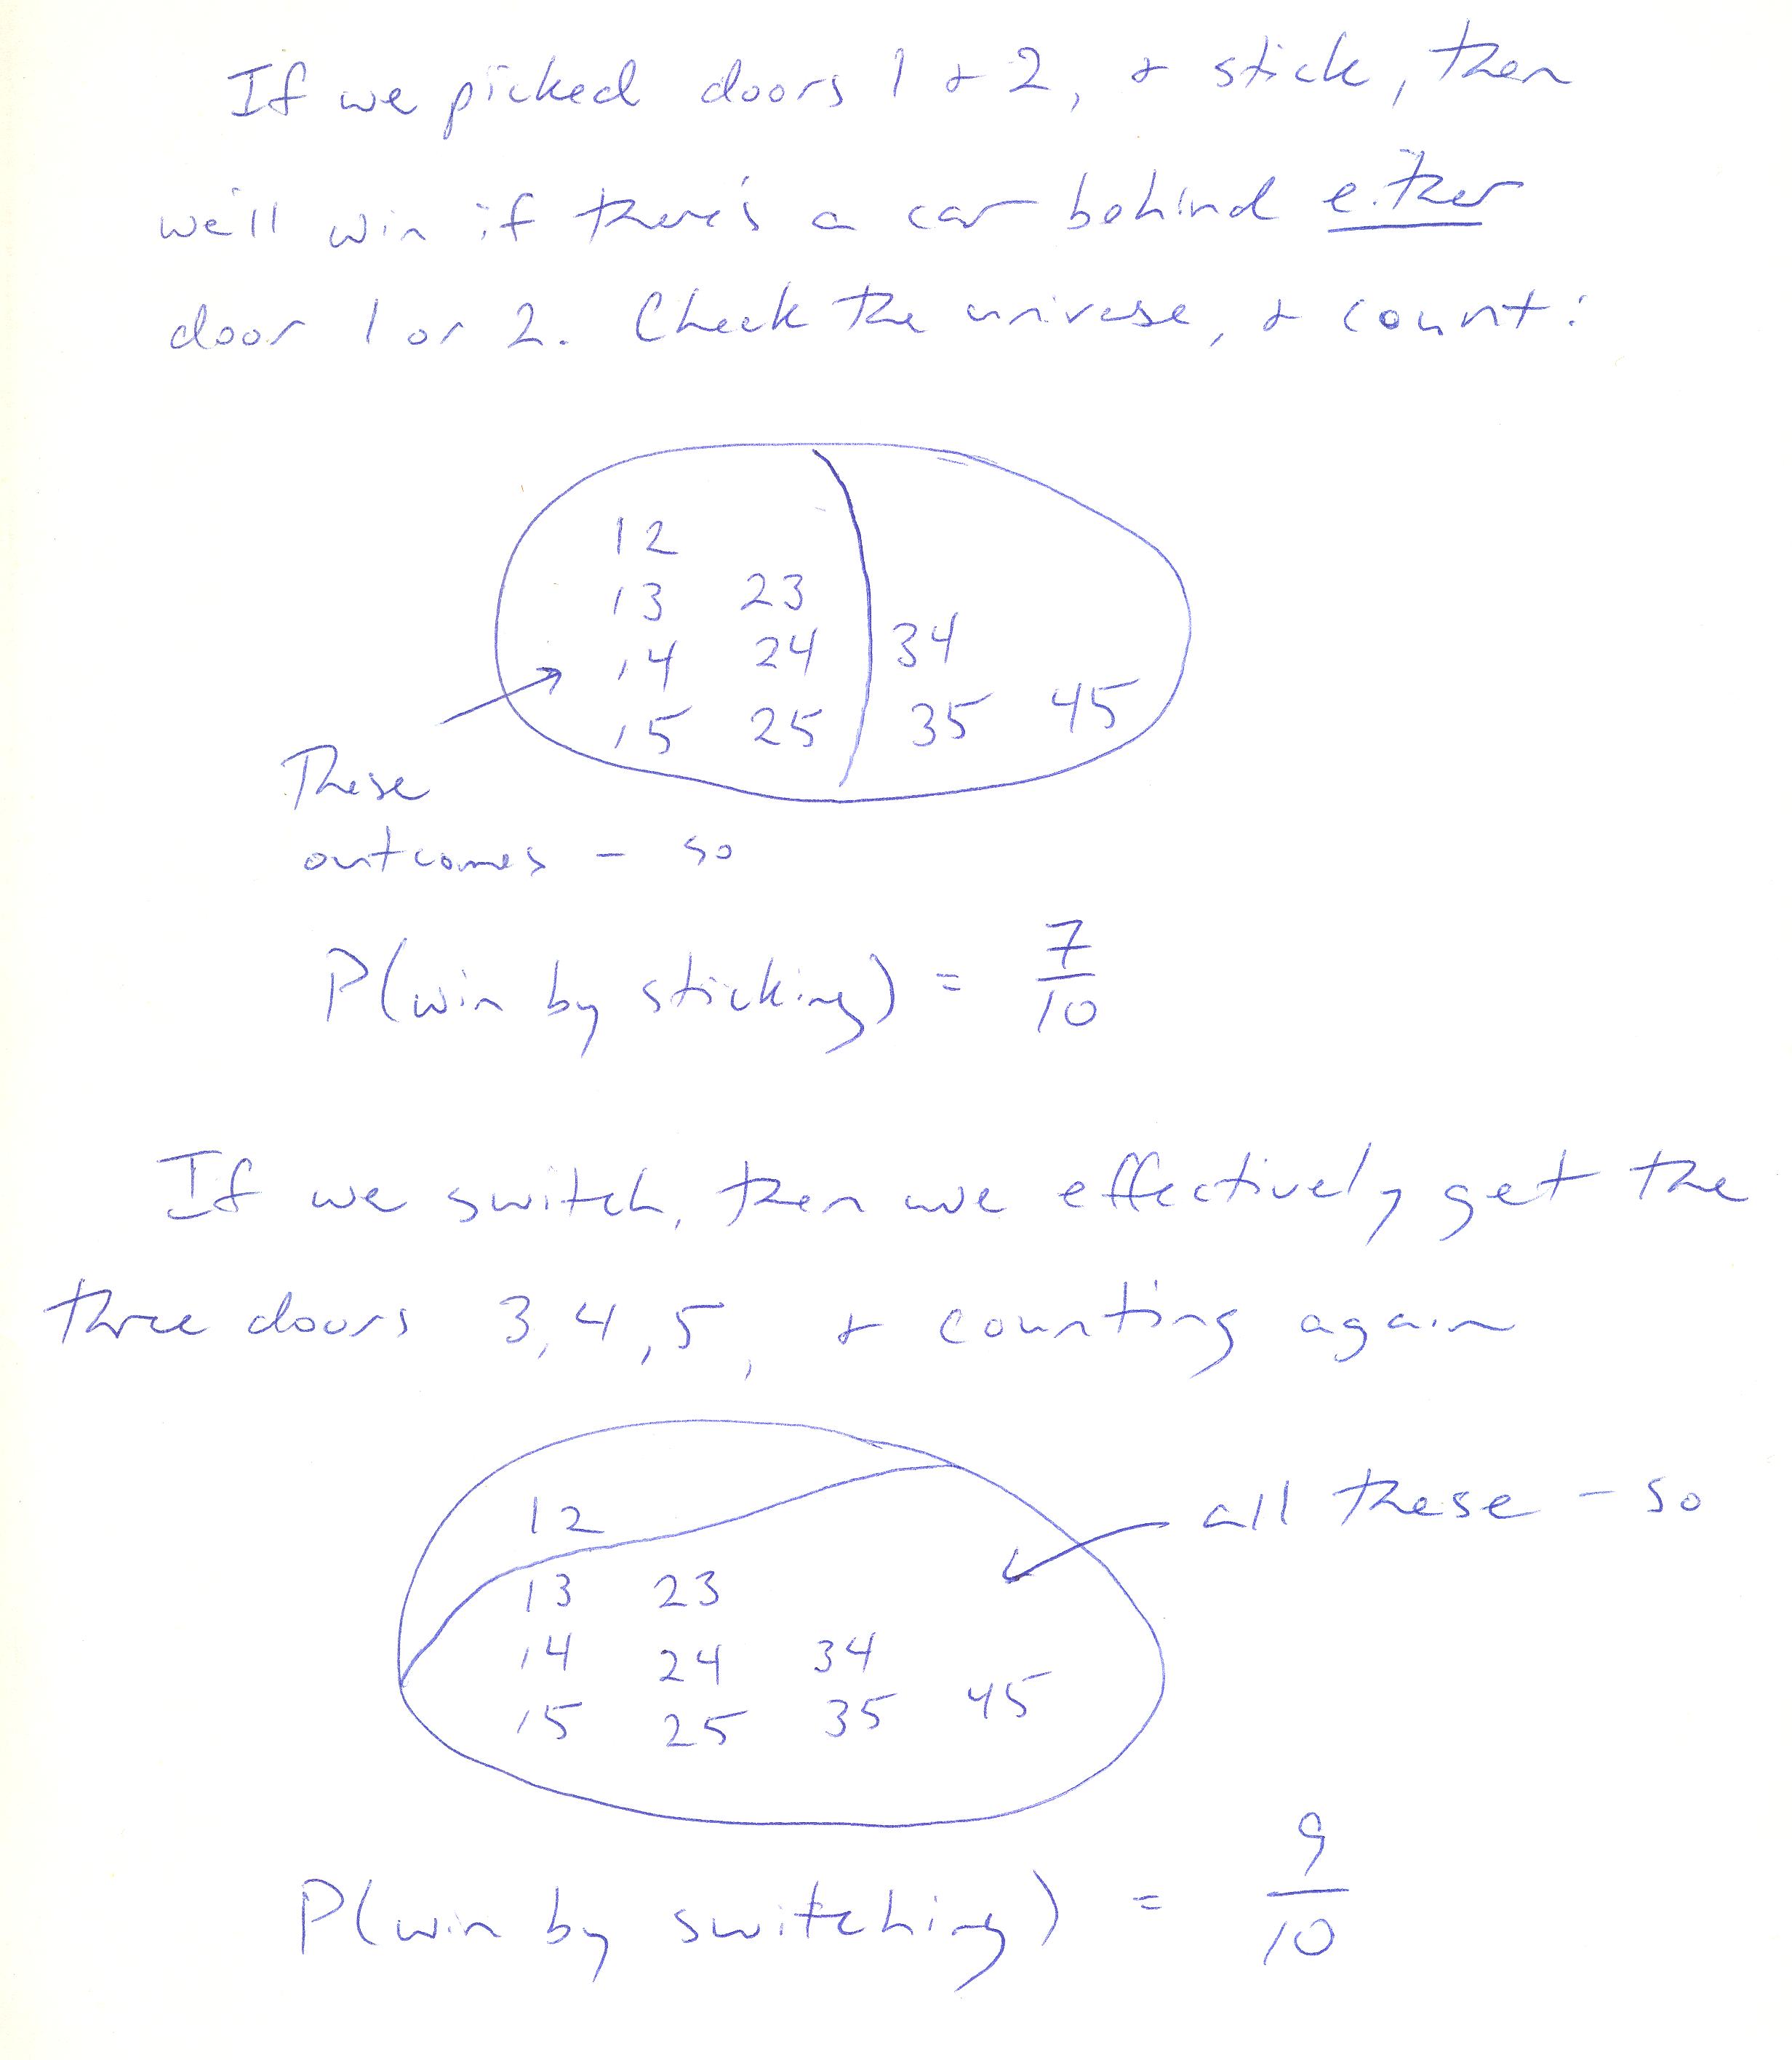 If we picked doors 1 & 2, & stick, then
we'll win if there's a car behind either
door 1 or 2. Check the universe, & count:
12
13 23
14 24 34
15 25 35 45
These
outcomes - so
P(win by sticking) = 7/10
If we switch, then we effectively get the
three doors 3, 4, 5, & counting again
12
all these - so
13 23
14 24 34
15 25 35 45
P(win by switching) = 9/10